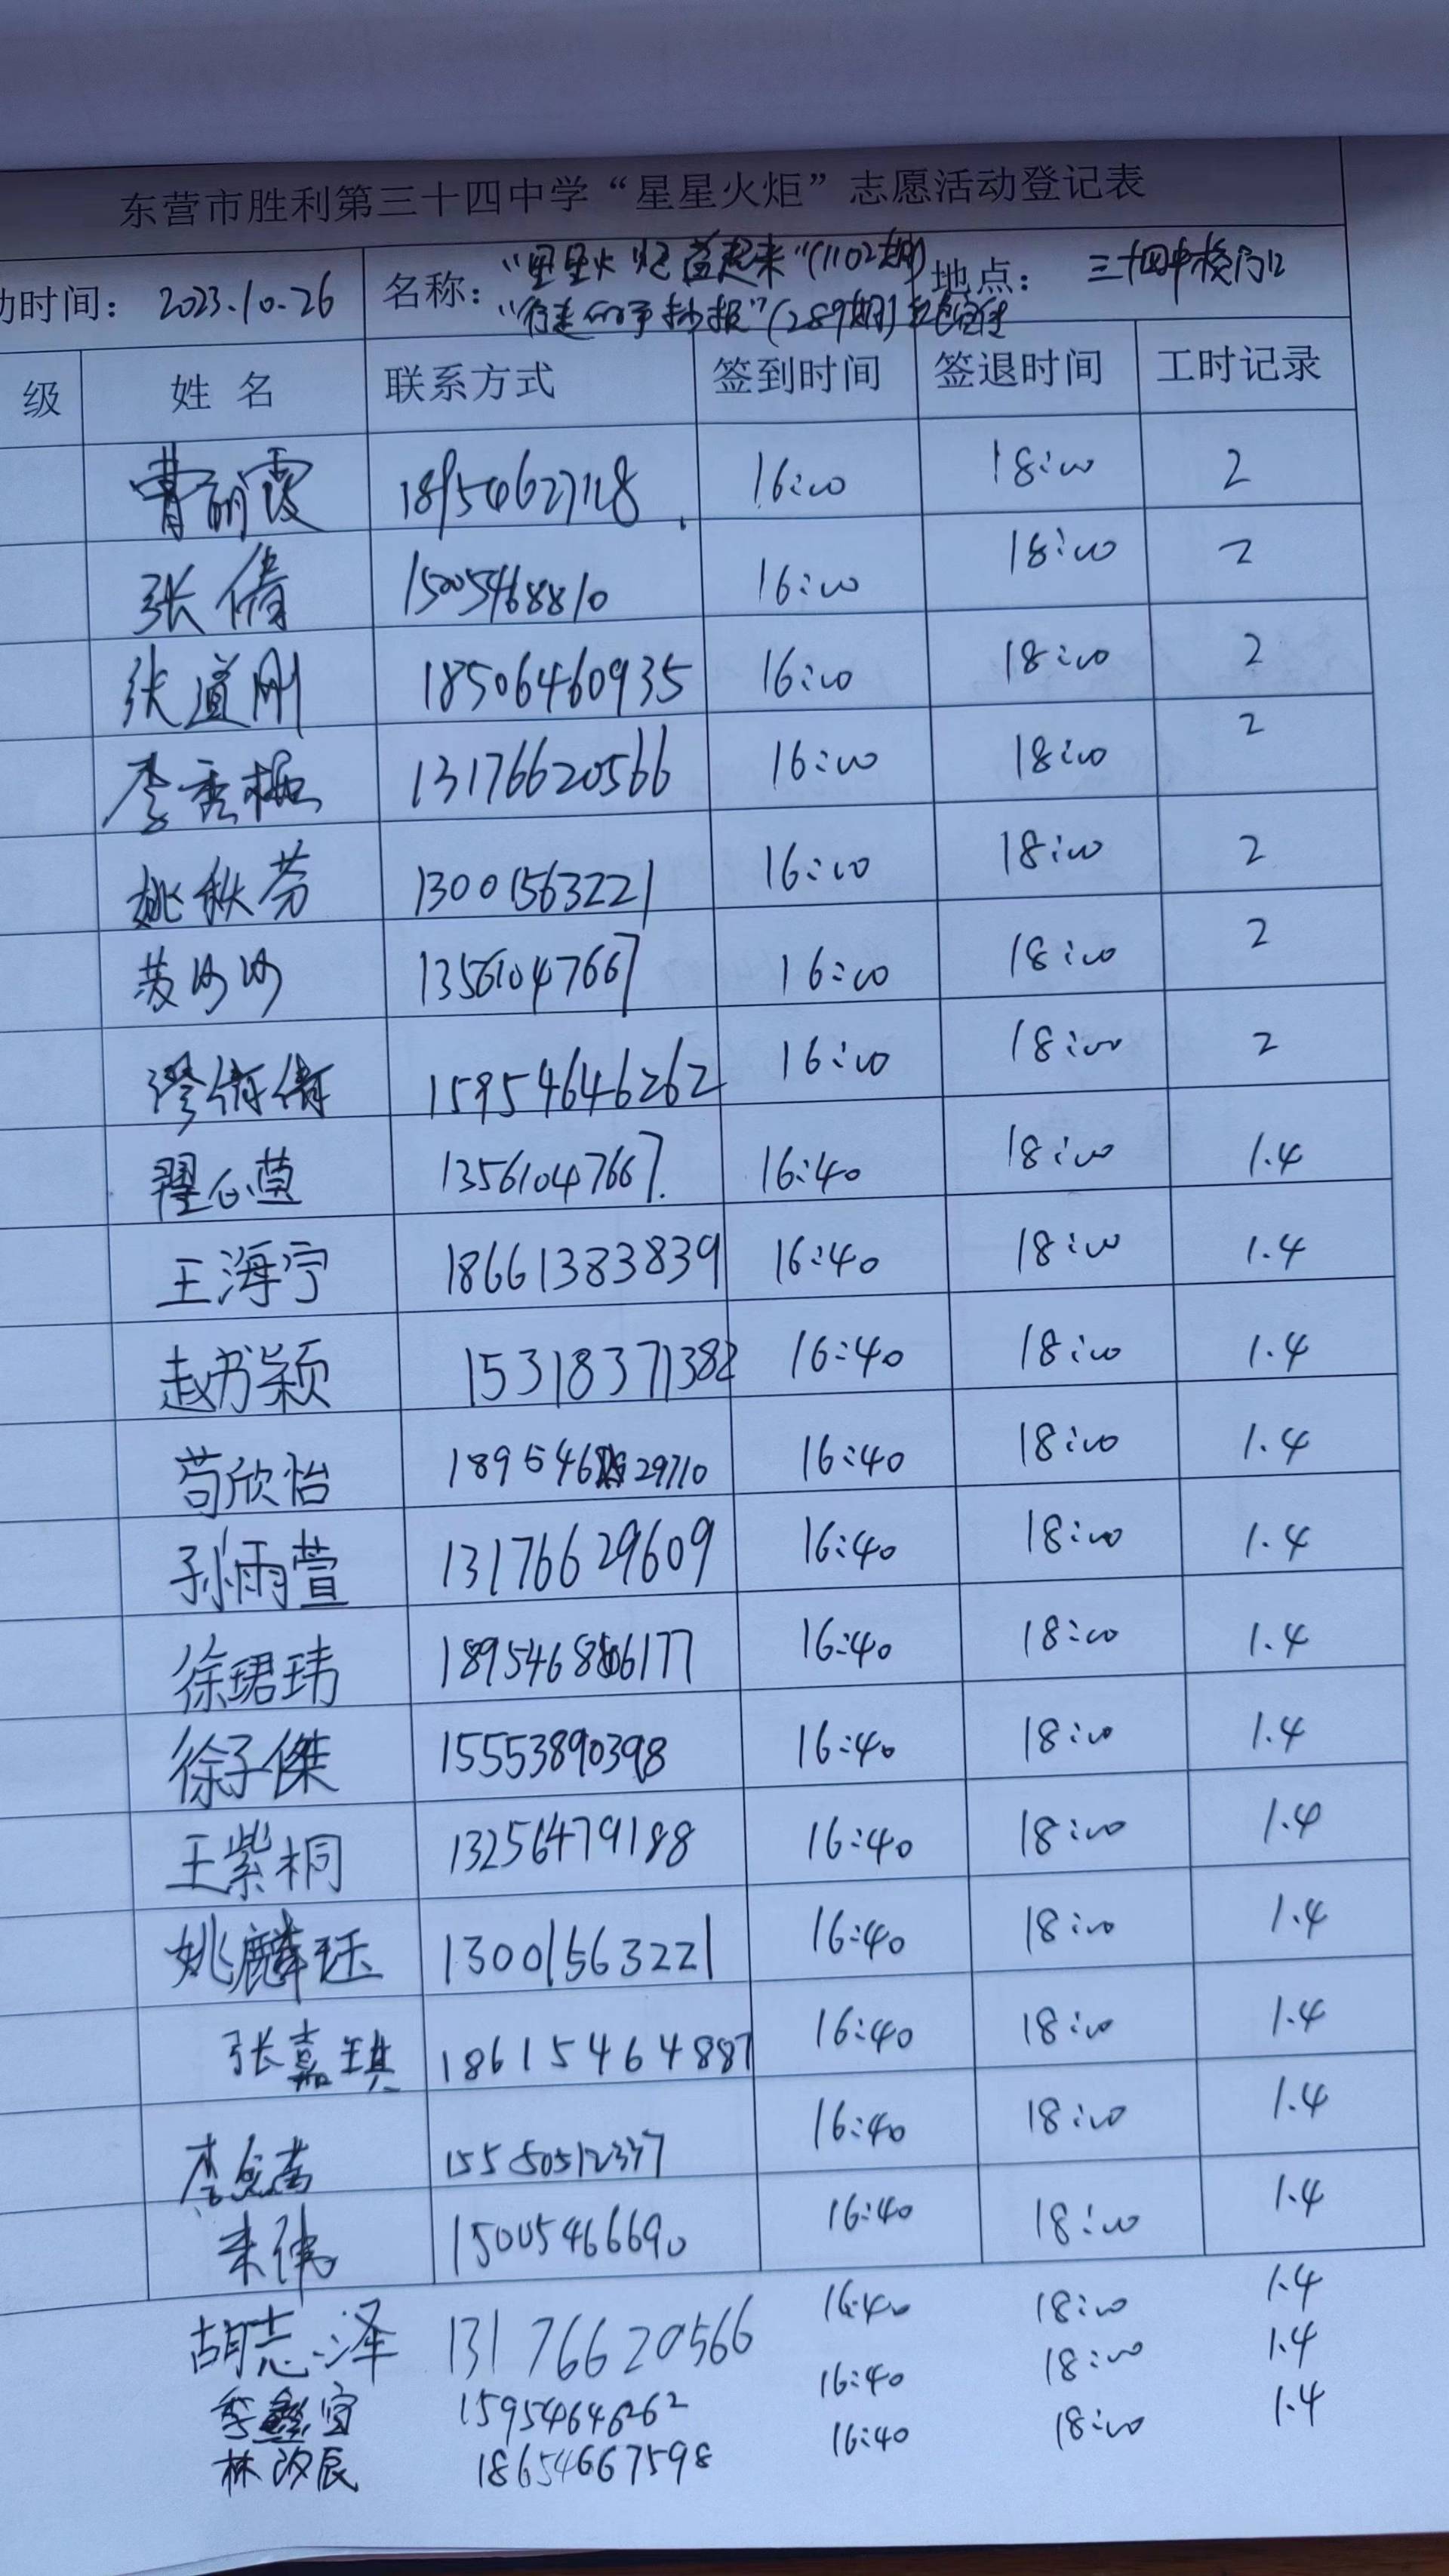 东营市胜利第三十四中学“星星火炬”志愿活动登记表
动时间： 2023.10.26 名称： “星星火炬益起来”(1102期) 地点： 三十四中校门口
“行走的手抄报”(289期)
级 姓 名 联系方式 签到时间 签退时间 工时记录
曹丽霞 18954627118 16:00 18:00 2
张倩 15005468810 16:00 18:00 2
张道刚 18506460935 16:00 18:00 2
李秀梅 13176620566 16:00 18:00 2
姚秋芬 13001563221 16:00 18:00 2
黄沙沙 13561047667 16:00 18:00 2
缪倩倩 15954646262 16:00 18:00 2
翟心萱 13561047667 16:40 18:00 1.4
王海宁 18661383839 16:40 18:00 1.4
赵书颖 15318371382 16:40 18:00 1.4
苟欣怡 16:40 18:00 1.4
孙雨萱 13176629609 16:40 18:00 1.4
徐珺玮 16:40 18:00 1.4
徐子傑 15553890398 16:40 18:00 1.4
王紫桐 13256479188 16:40 18:00 1.4
姚麟珏 13001563221 16:40 18:00 1.4
张嘉琪 18615464887 16:40 18:00 1.4
李 15550512337 16:40 18:00 1.4
朱伟 15005466690 16:40 18:00 1.4
胡志泽 13176620566 16:40 18:00 1.4
李 宜 15954646262 16:40 18:00 1.4
林汝辰 18654667598 16:40 18:00 1.4